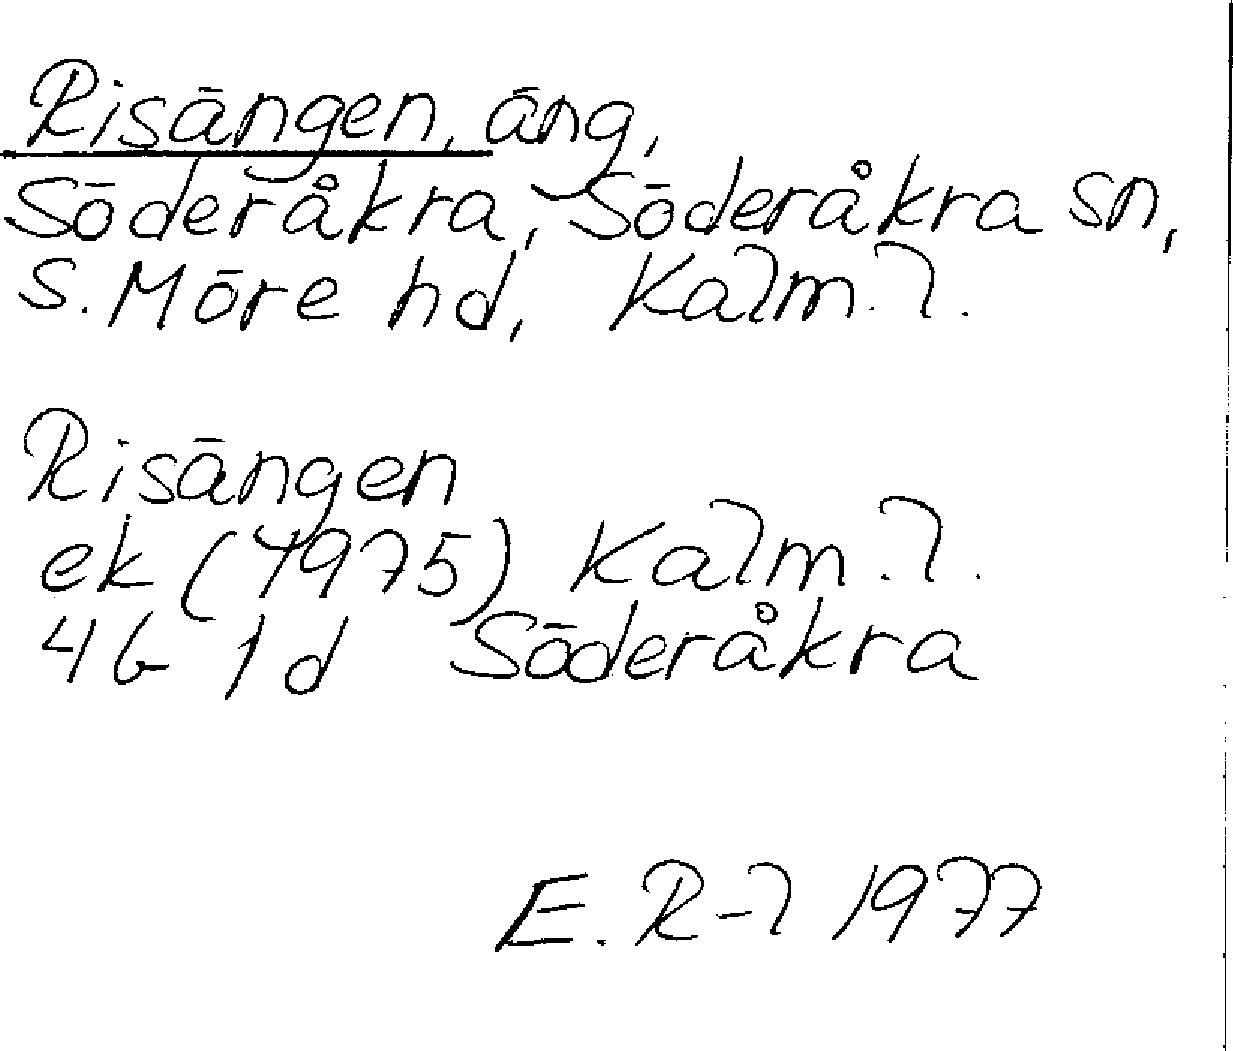 Risängen, äng,
Söderåkra, Söderåkra sn,
S. Möre hd, Kalm. l.
Risängen
ek (1975) Kalm. l.
4G 1d Söderåkra
E. R-l 1977